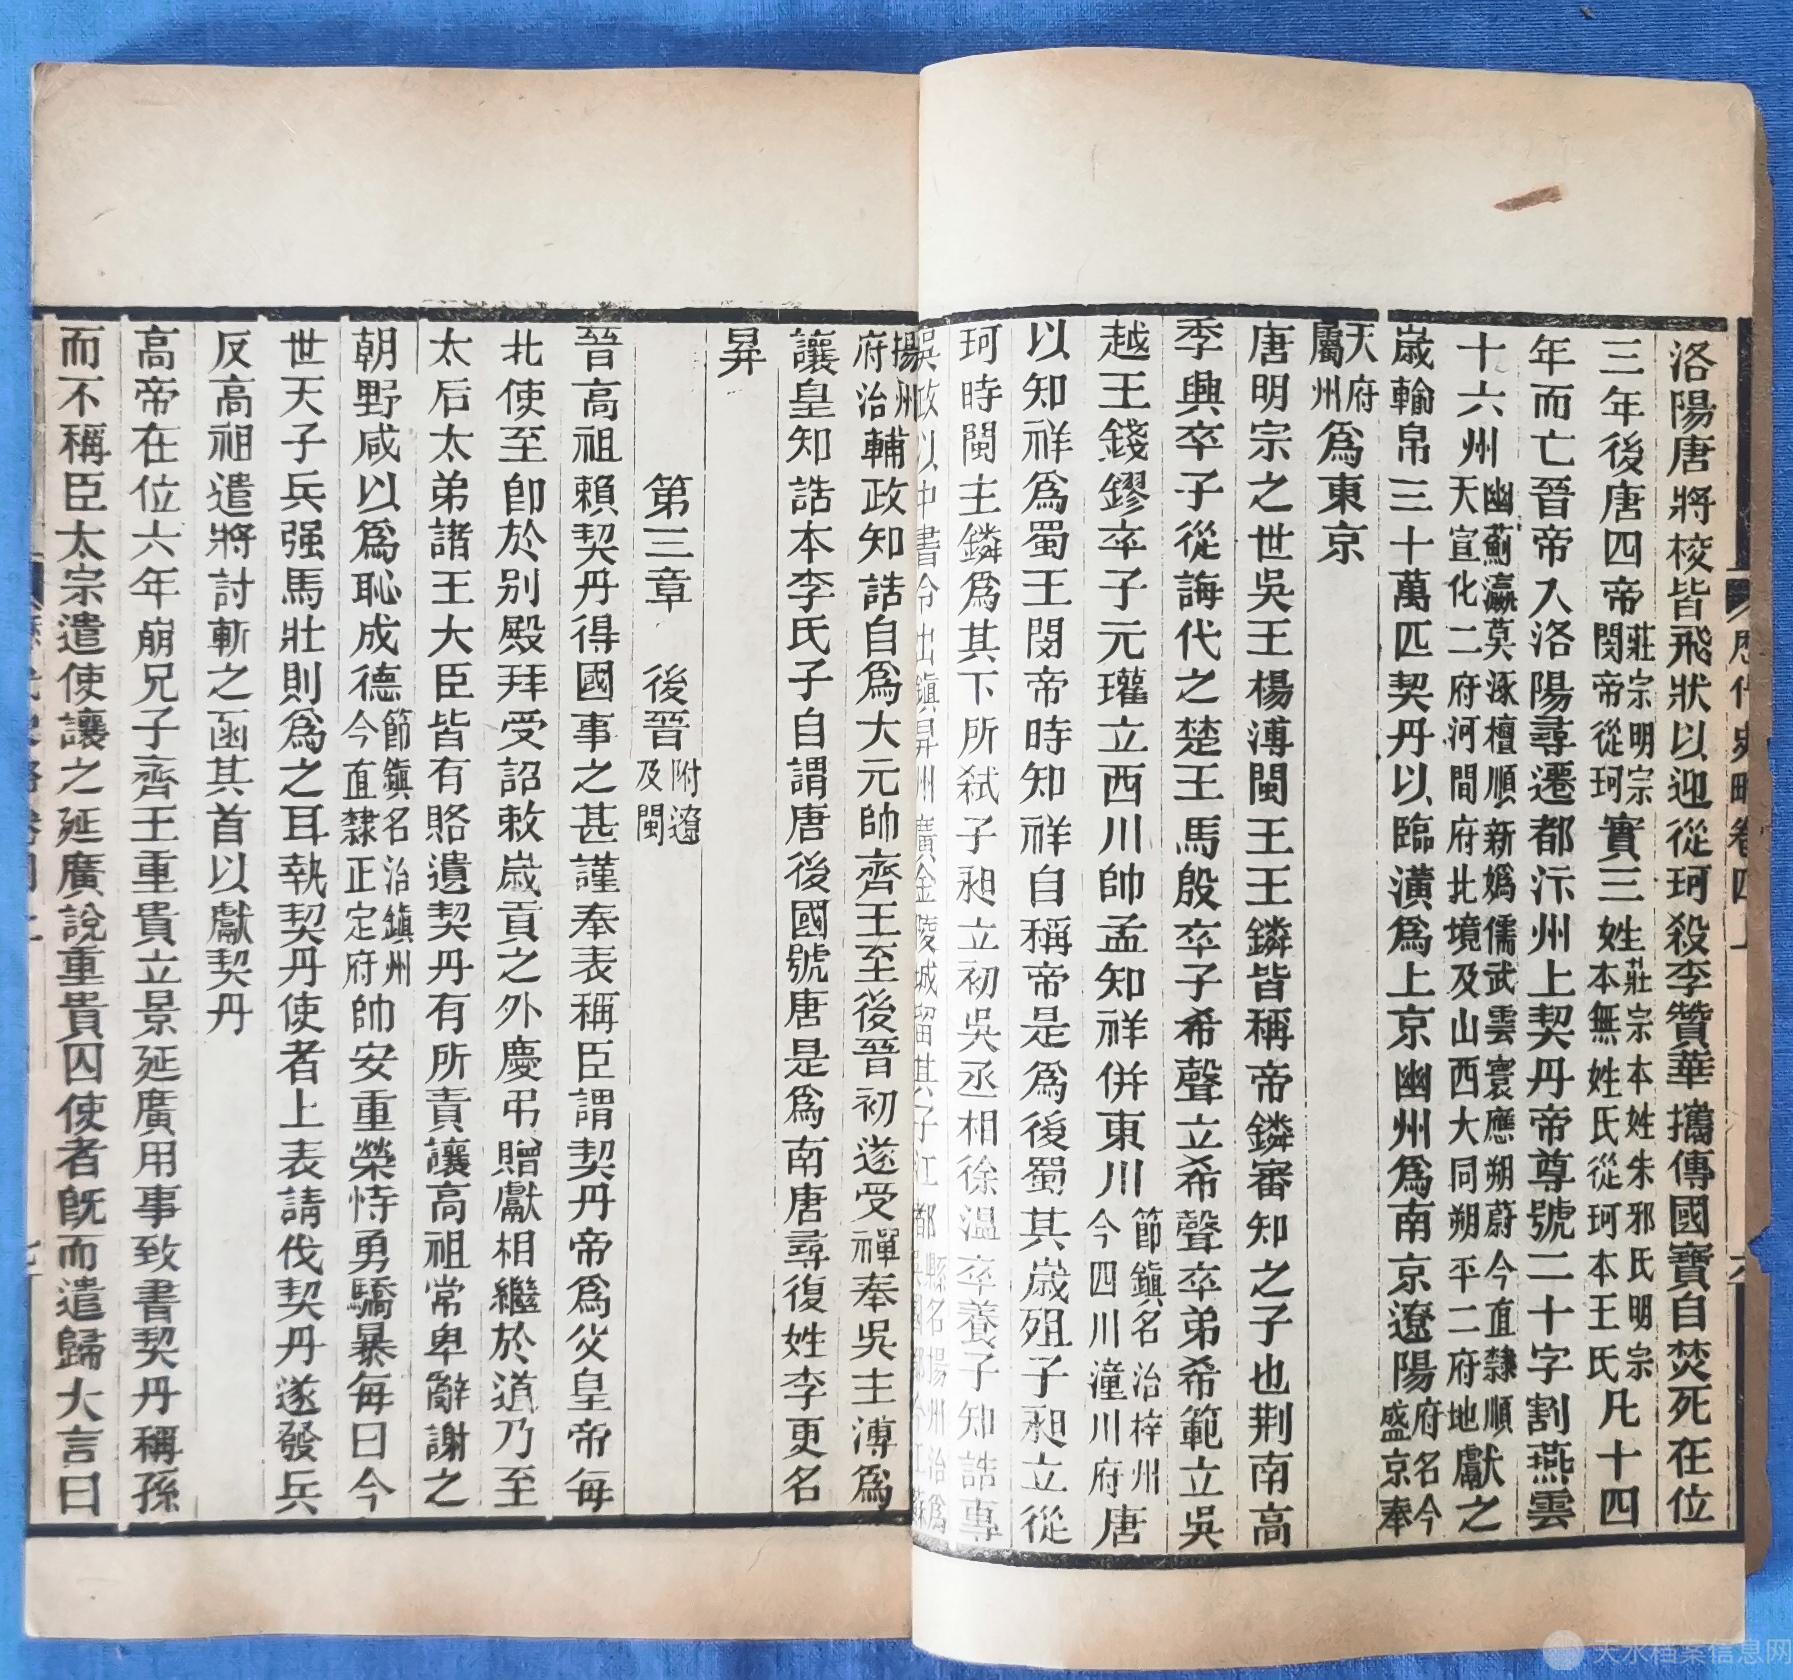 歷代史略卷四上
六
洛陽唐將校皆飛狀以迎從珂殺李贊華攜傳國寶自焚死在位
三年後唐四帝莊宗明宗閔帝從珂實三姓莊宗本姓朱邪氏明宗本無姓氏從珂本王氏凡十四
年而亡晉帝入洛陽尋遷都汴州上契丹帝尊號二十字割燕雲
十六州幽薊瀛莫涿檀順新嬀儒武雲寰應朔蔚今直隸順天宣化二府河間府北境及山西大同朔平二府地獻之
歲輸帛三十萬匹契丹以臨潢爲上京幽州爲南京遼陽府名今盛京奉
天府屬州爲東京
唐明宗之世吳王楊溥閩王王鏻皆稱帝鏻審知之子也荆南高
季興卒子從誨代之楚王馬殷卒子希聲立希聲卒弟希範立吳
越王錢鏐卒子元瓘立西川帥孟知祥併東川節鎮名治梓州今四川潼川府唐
以知祥爲蜀王閔帝時知祥自稱帝是爲後蜀其歲殂子昶立從
珂時閩主鏻爲其下所弒子昶立初吳丞相徐溫卒養子知誥專
吳政以中書令出鎮昇州廣金陵城留其子江都縣名揚州治爲
揚州府治輔政知誥自爲大元帥齊王至後晉初遂受禪奉吳主溥爲
讓皇知誥本李氏子自謂唐後國號唐是爲南唐尋復姓李更名
昇
第三章 後晉附遼及閩
晉高祖賴契丹得國事之甚謹奉表稱臣謂契丹帝爲父皇帝每
北使至卽於别殿拜受詔敕歲貢之外慶弔贈獻相繼於道乃至
太后太弟諸王大臣皆有賂遺契丹有所責讓高祖常卑辭謝之
朝野咸以爲恥成德節鎮名治鎮州今直隸正定府帥安重榮恃勇驕暴每曰今
世天子兵强馬壯則爲之耳執契丹使者上表請伐契丹遂發兵
反高祖遣將討斬之函其首以獻契丹
高帝在位六年崩兄子齊王重貴立景延廣用事致書契丹稱孫
而不稱臣太宗遣使讓之延廣說重貴囚使者旣而遣歸大言曰
天水档案信息网